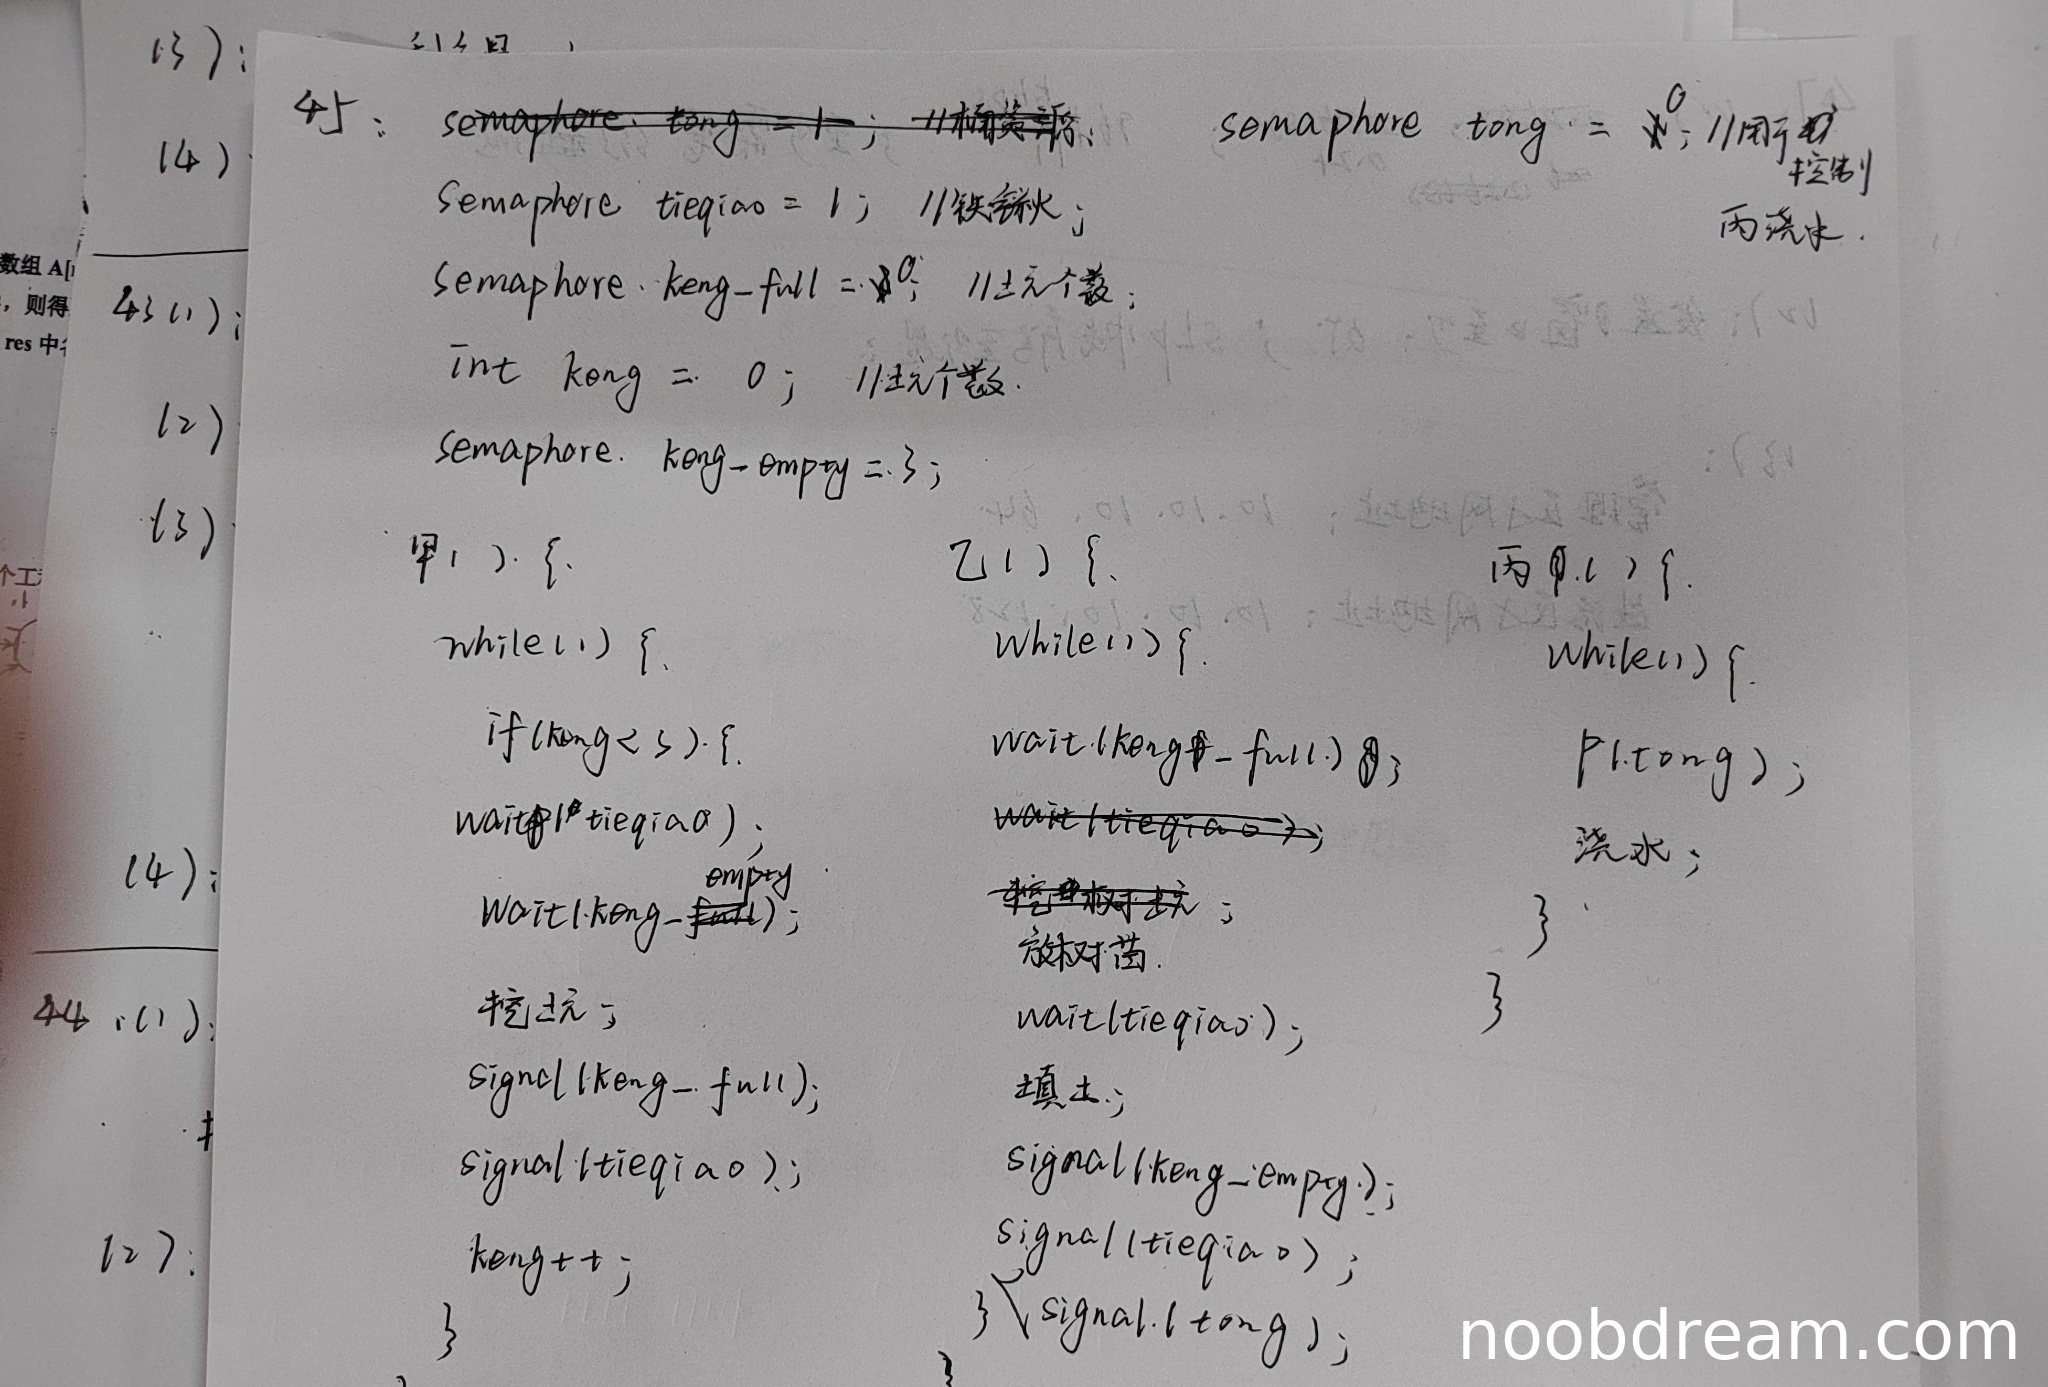 (3):
(4)
数组 A[
，则得
res 中
43(1):
(2)
(3)
(4):
44.(1):
(2):
45: semaphore tong = 1; semaphore tong = 0; //用于
控制
丙浇水.
semaphore tieqiao = 1; //铁锹;
semaphore keng_full = 0; //土坑个数;
int keng = 0; //土坑个数.
semaphore. keng_empty = 3;
甲( ). {.
while(1) {.
if(keng<3).{.
wait(tieqiao);
empty
wait(keng_full);
挖土坑;
signal(keng_full);
signal(tieqiao);
keng++;
}
}
乙( ) {.
while(1){.
wait(keng_full);
wait(tieqiao);
放树苗.
wait(tieqiao);
填土;
signal(keng_empty);
signal(tieqiao);
} signal(tong);
}
丙( ) {.
while(1){.
P(tong);
浇水;
}
}
noobdream.com